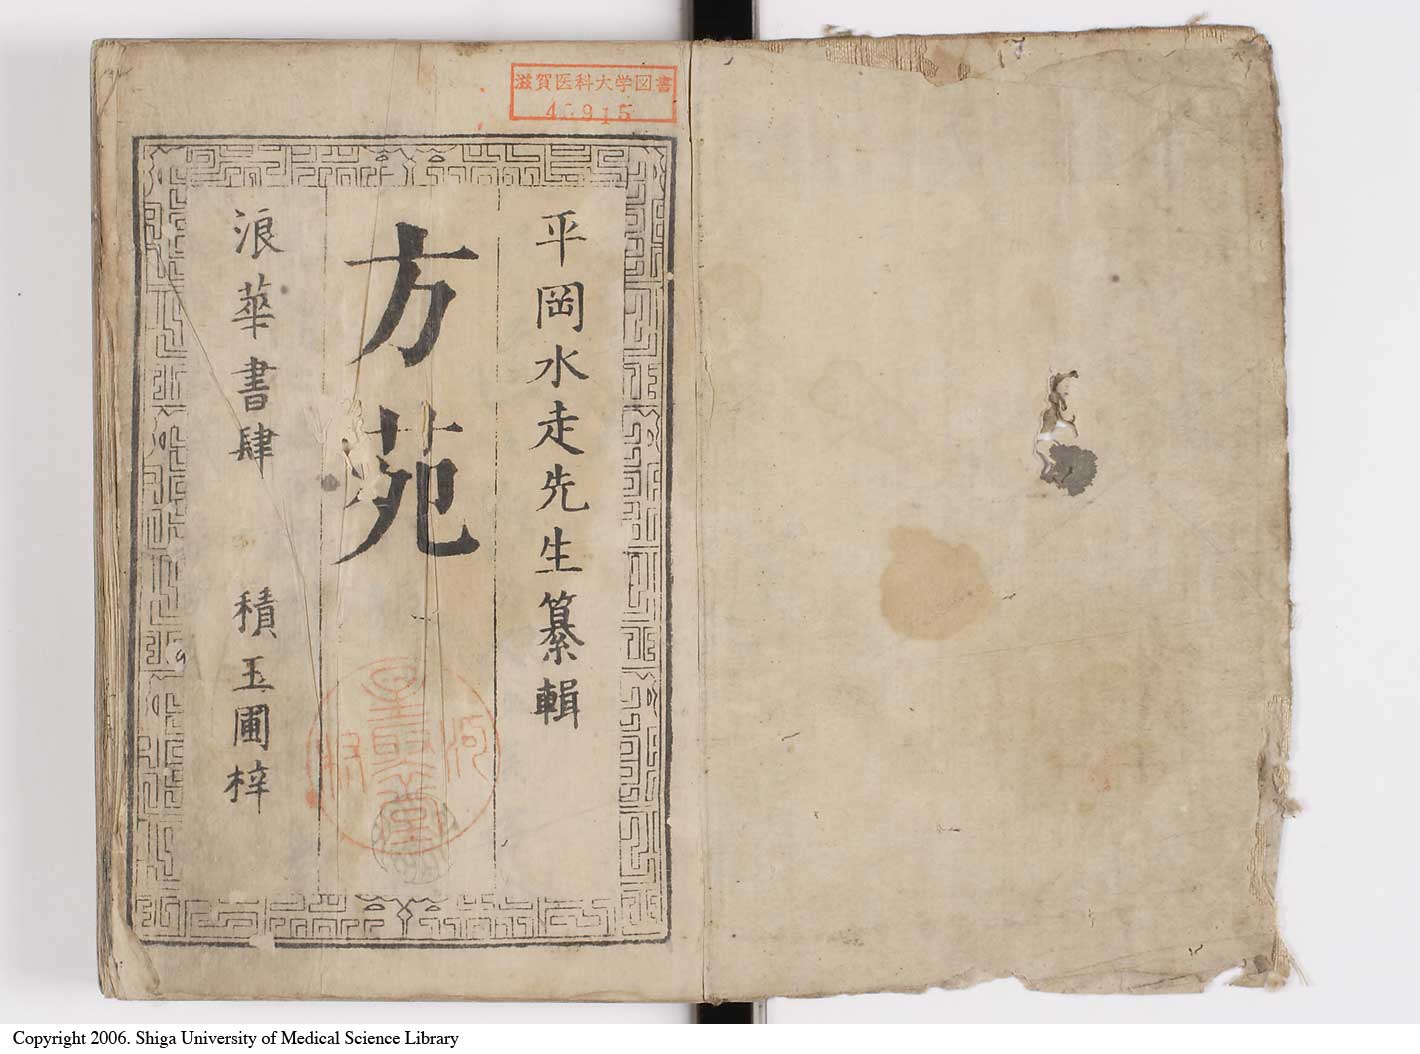 滋賀医科大学図書
平岡水走先生纂輯
方苑
浪華書肆 積玉圃梓
Copyright 2006. Shiga University of Medical Science Library